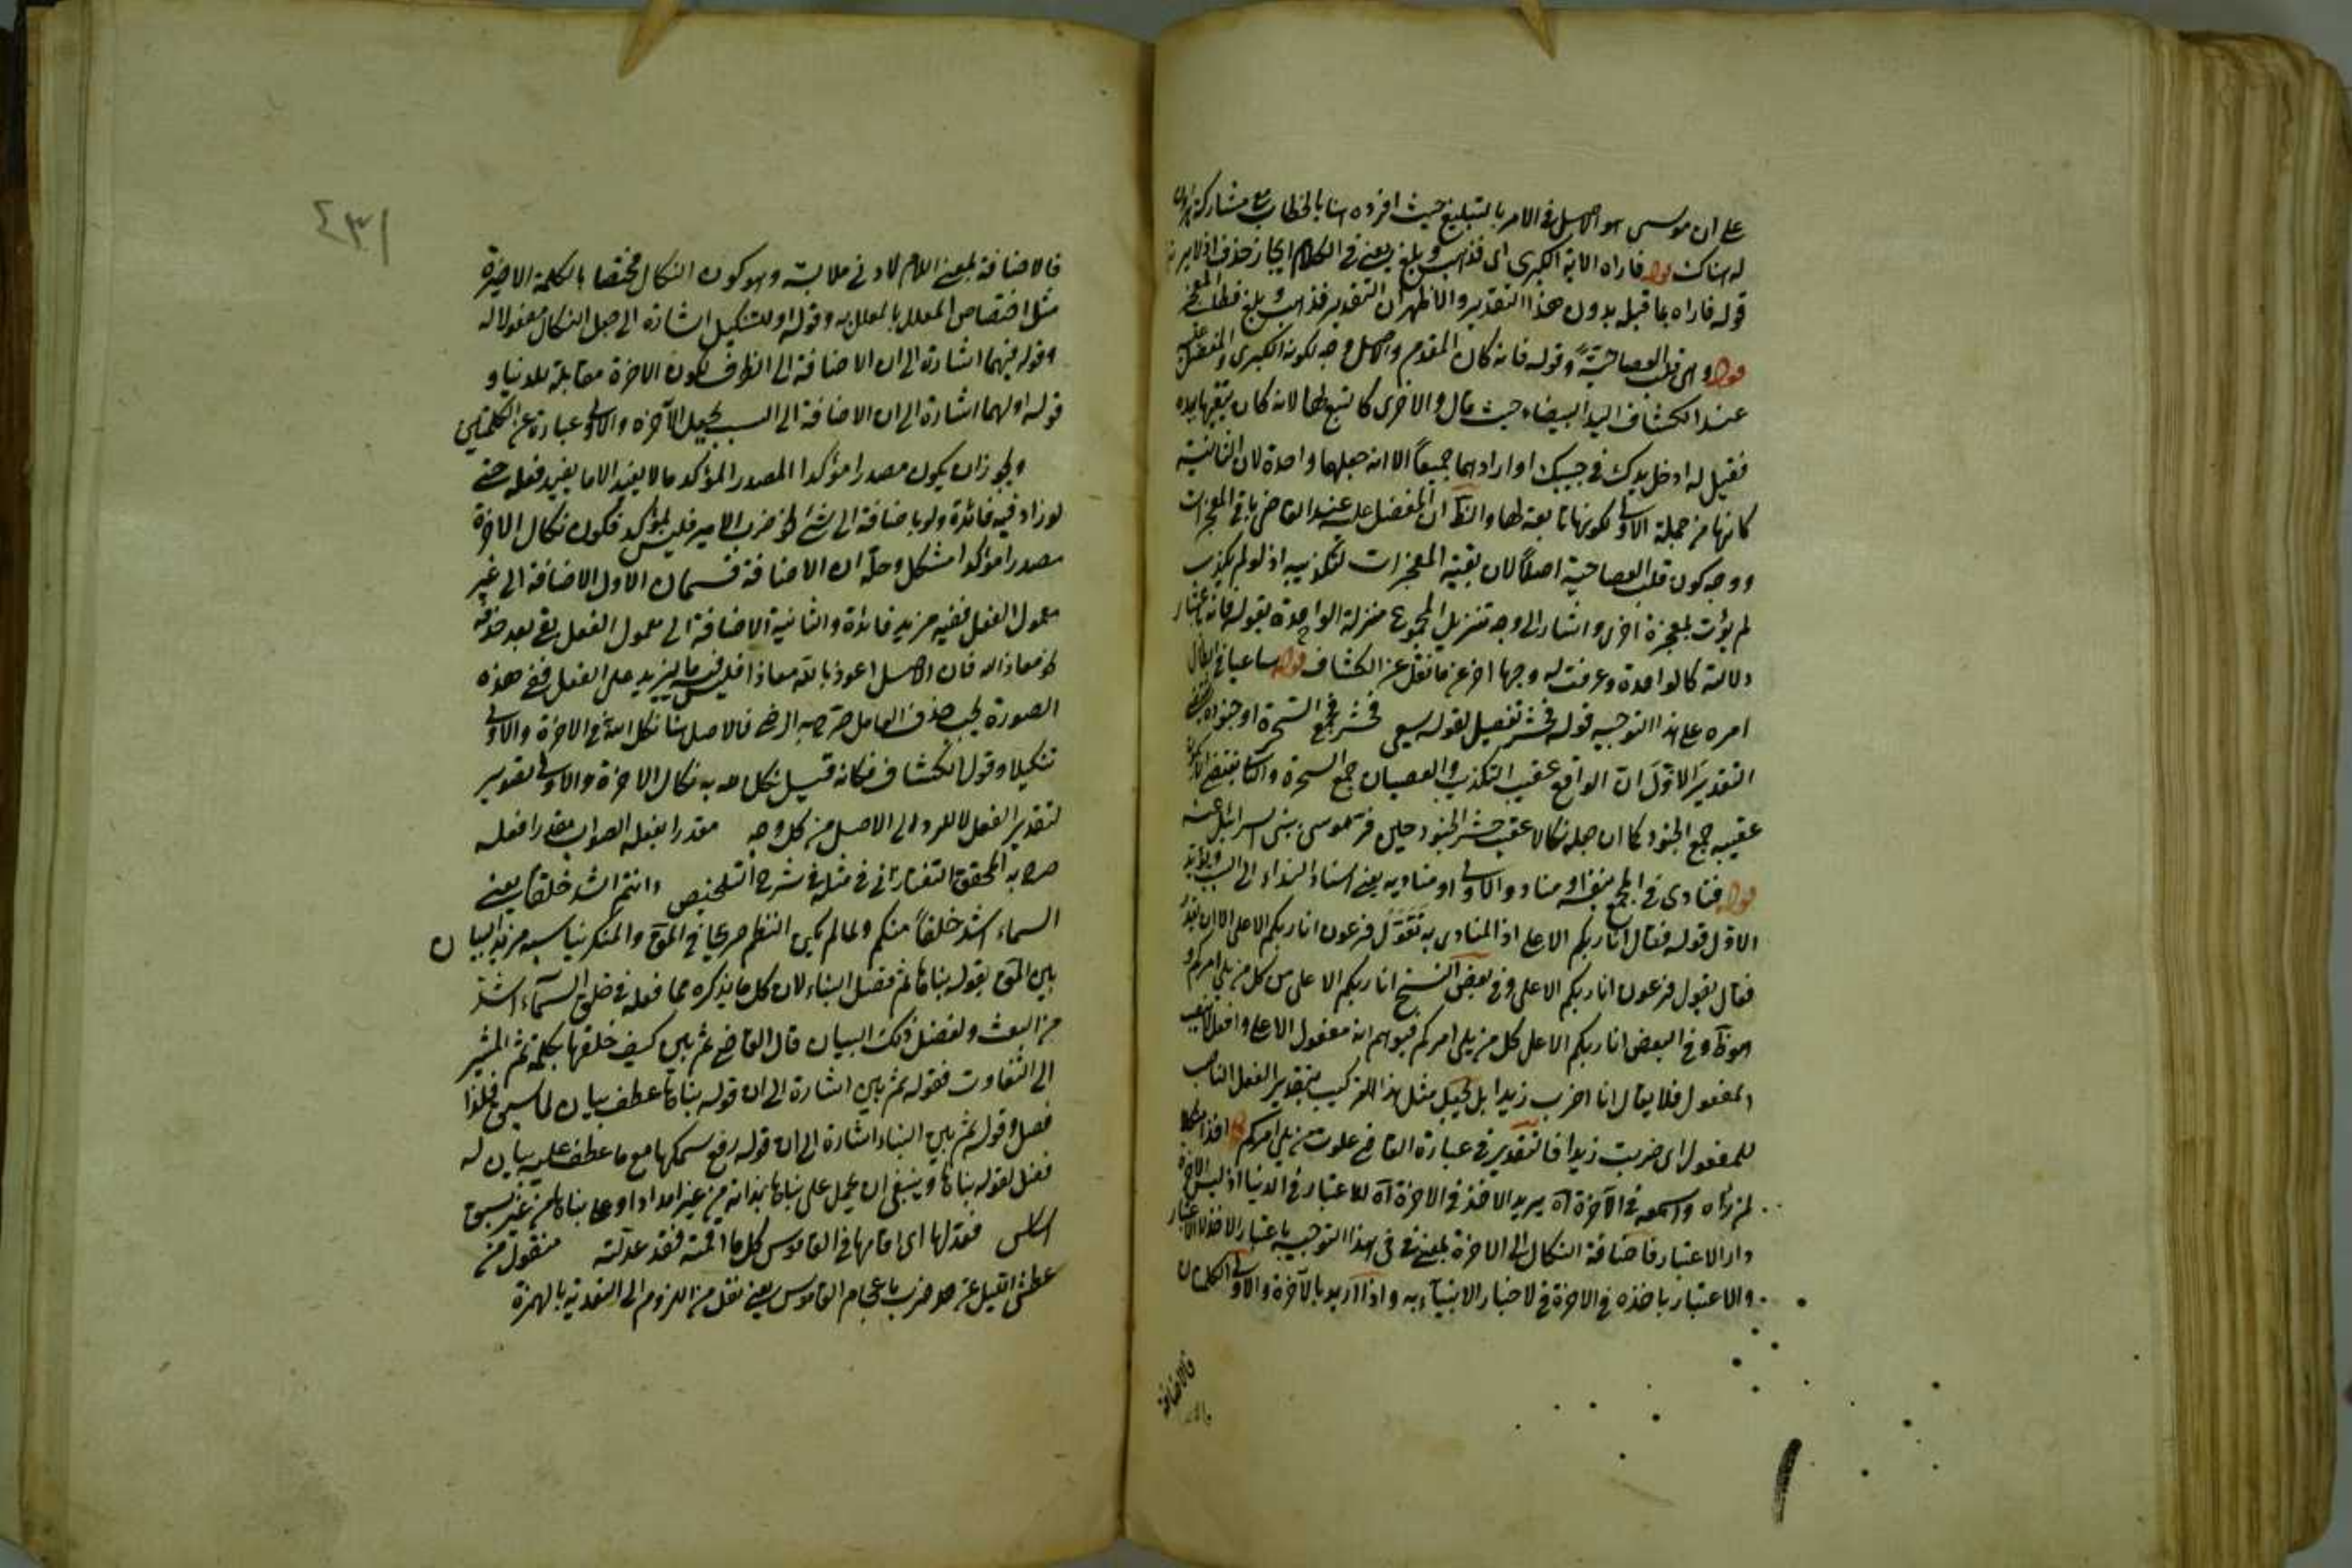 على ان موسى هو الاصل في الامر بالتبليغ حيث افرده هنا بالخطاب مع مشاركة هرون
له هناك قوله فاراه الاية الكبرى اى فذهب وبلغ يعنى في الكلام ايجاز حذف
قوله فاراه بما قبله بدون هذا التقدير والاظهر ان التقدير فذهب وبلغ فطلب المعجزة
قوله وهى قلب العصا حية وقوله فانه كان المقدم والاصل وجه لكونه الكبرى والمفضل عليه
عند الكشاف اليد البيضاء حيث قال والاخرى كالتبع لها لانه كان يتبعها بيده
فقيل له ادخل يدك في جيبك او ارادهما جميعا الا انه جعلها واحدة لان الثانية
كانها من جملة الاولى لكونها تابعة لها والظ ان المفضل عليه عند القاضى باقى المعجزات
ووجه كون قلب العصا حية اصلا لان بقية المعجزات لتكذيبه اذ لو لم يكذب
لم يؤت بمعجزة اخرى واشار الى وجه تنزيل المجموع منزلة الواحدة بقوله فانه باعتبار
دلالته كالواحدة وعرفت له وجها اخر عن ما نقل عن الكشاف قوله ساعيا في ابطال
امره على هذا التوجيه قوله فحشر تفصيل لقوله يسعى فحشر فجمع السحرة او جنوده
التقدير الاول ان الواقع عقيب التكذيب والعصيان جمع السحرة والثانى
عقيبه جمع الجنود كما ان جعله نكالا عقيب حشر الجنود حين فر موسى ببنى اسرائيل عنه
قوله فنادى في المجمع بنفسه او مناد والاولى او مناديه يعنى اسناد النداء الى السبب ويؤيد
الاول قوله فقال انا ربكم الاعلى اذ المنادى به تقول فرعون انا ربكم الاعلى الا ان يقدر
فقال يقول فرعون انا ربكم الاعلى وفي بعض النسخ انا ربكم الاعلى من كل من يلى امركم و
هو ظ وفي البعض انا ربكم الاعلى كل من يلى امركم فيوهم انه مفعول الاعلى وافعل لا ينصب
المفعول فلا يقال انا اضرب زيدا بل يجعل مثل هذا التركيب بتقدير الفعل الناصب
للمفعول اى ضربت زيدا فالتقدير في عبارة القاضى علوت من يلى امركم قوله اخذا منكلا
لمن راه وسمعه في الآخرة اه يريد الاخذ في الاخرة اه للاعتبار في الدنيا اذ ليس الاخرة
دار الاعتبار فاضافة النكال الى الاخرة بمعنى في في هذا التوجيه باعتبار الاخذ لا الاعتبار
والاعتبار باخذه في الاخرة في لاخبار الانبياء به واذا اريد بالآخرة والاولى الكلمتان
فالاضافة
٤٣١
فالاضافة بمعنى اللام لادنى ملابسة وهو كون النكال مختصا بالكلمة الاخيرة
مثل اختصاص المعلل بالمعلل به وقوله او للتنكيل اشارة الى جعل النكال مفعولا له
وقوله فيهما اشارة الى ان الاضافة الى الظرف لكون الاخرة مقابلة للدنيا و
قوله او لهما اشارة الى ان الاضافة الى السبب بجعل الآخرة والاولى عبارة عن الكلمتين
ويجوز ان يكون مصدرا مؤكدا المصدر المؤكد ما لا يفيد الا ما يفيد فعله حتى
لو زاد فيه فائدة ولو باضافة الى شئ نحو ضرب الامير فليس بمؤكد فكون نكال الاخرة
مصدرا مؤكدا مشكل وحله ان الاضافة قسمان الاول الاضافة الى غير
معمول الفعل ففيه مزيد فائدة والثانية الاضافة الى معمول الفعل بعد حذفه
نحو معاذ الله فان الاصل اعوذ بالله معاذا فليس فيه ما يزيد على الفعل ففى هذه
الصورة يجب حذف العامل صرح به الرضى فالاصل هنا نكل الله في الاخرة والاولى
تنكيلا وقول الكشاف فكانه قيل نكل الله به نكال الاخرة والاولى تقدير
لتقدير الفعل لا للرد الى الاصل من كل وجه مقدرا بفعله الصواب مقدرا فعله
صرح به المحقق التفتازانى في مثله في شرح التلخيص ءانتم اشد خلقا يعنى
السماء اشد خلقا منكم ولما لم يكن النظم صريحا في الموق والمنكر يناسبه مزيد البيان
بين الموق بقوله بناها ثم فصل البناء لان كل ما يذكره مما فعله في خلق السماء اشد
من البعث ولفضل ذلك البيان قال القاضى ثم بين كيف خلقها بكلمة ثم المشير
الى التفاوت فقوله ثم بين اشارة الى ان قوله بناها عطف بيان لما سبق فلذا
فصل وقوله ثم بين البناء اشارة الى ان قوله رفع سمكها مع ما عطف عليه بيان له
فصل لقوله بناها وينبغى ان يحمل على بناها بذاته من غير امداد او على بناها من غير سبق
اساس فعدلها اى اقامها في القاموس كل ما اقمته فقد عدلته منقول من
غطش الليل غ هو ضرب باعجام القاموس يعنى نقل من اللزوم الى التعدية بالهمزة